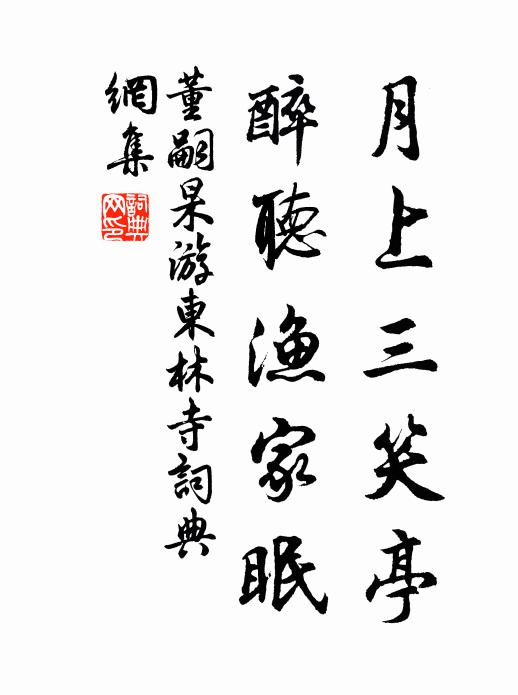 月上三笑亭
醉聽漁家眠
董嗣杲游東林寺詞典
網集
詞典網印